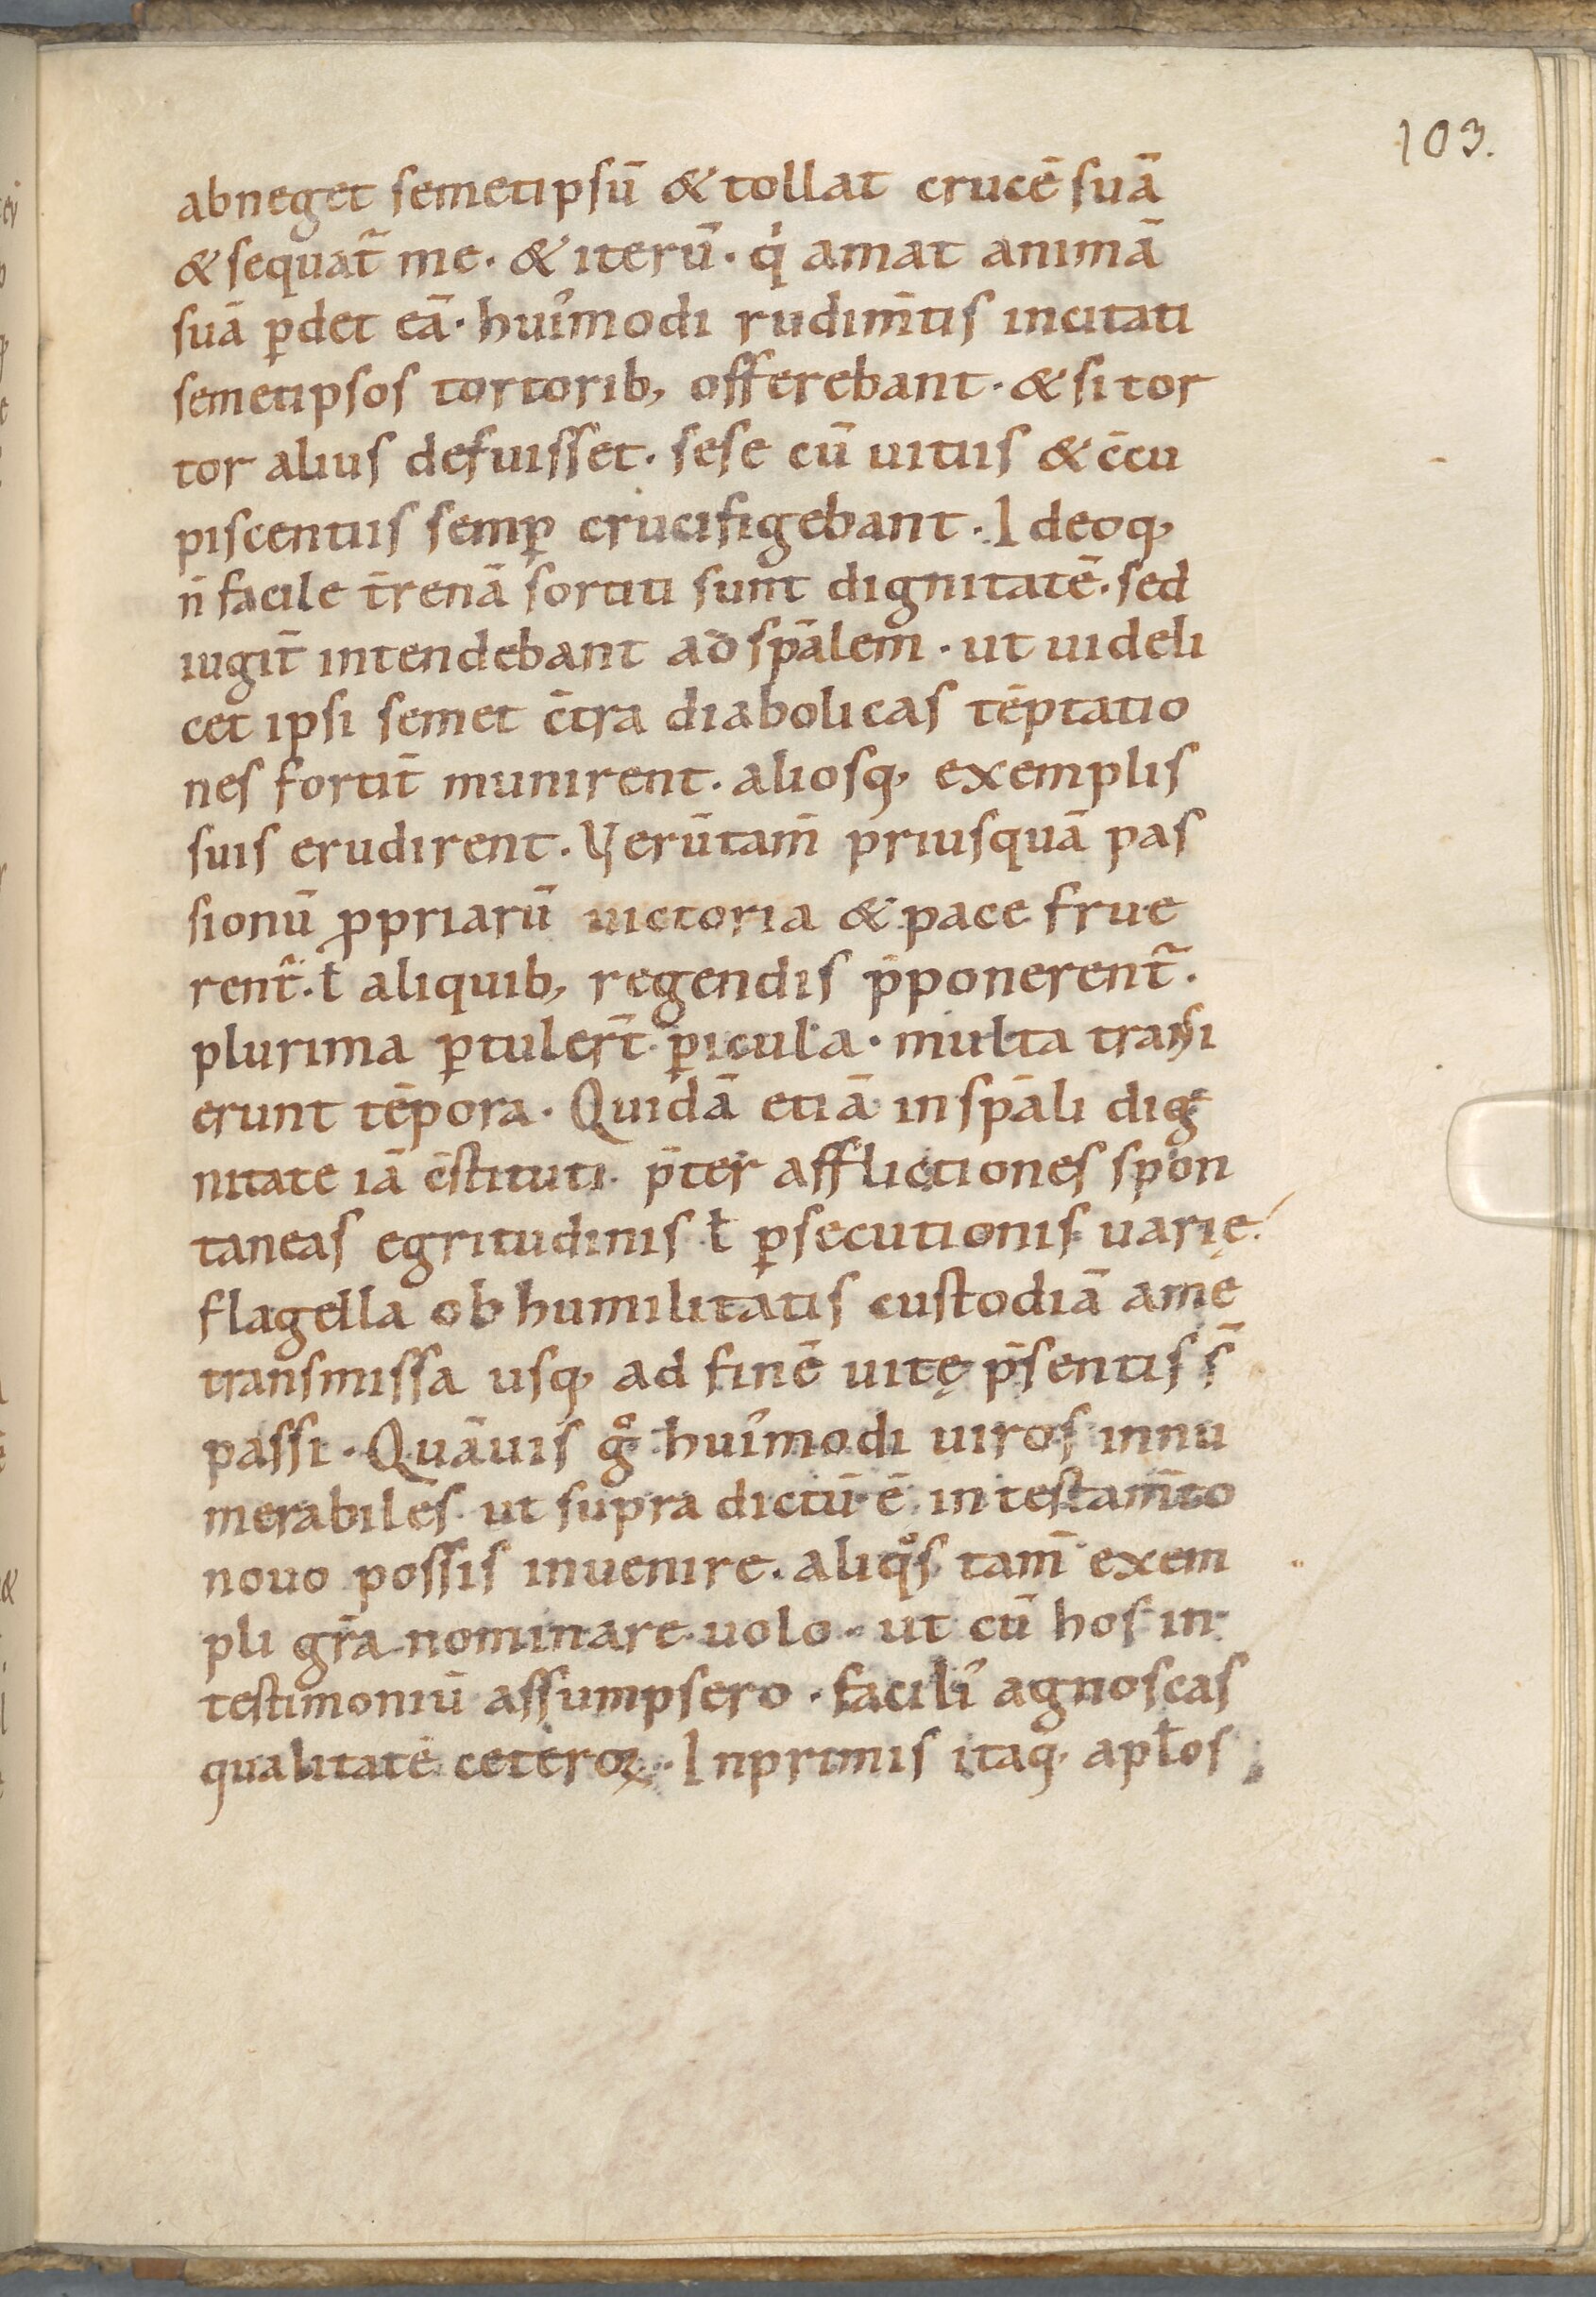 103.
abneget semetipsū & tollat crucē suā
& sequat̄ me. & iterū. q̇ amat animā
suā ꝑdet eā. hui᾽modi rudim̄tis incitati
semetipsos tortorib, offerebant. & si tor
tor alius defuisset. sese cū uitiis & c̄cu
piscentiis semꝑ crucifigebant. Ideoq,
n̄ facile t̄renā sortiti sunt dignitatē. sed
iugit̄ intendebant ad sp̄alem. ut uideli
cet ipsi semet c̄tra diabolicas tēptatio
nes fortit̄ munirent. aliosq, exemplis
suis erudirent. Verūtam̄ priusquā pas
sionū ꝓpriarū uictoria & pace frue
rent̄. ł aliquib, regendis p̄ponerent̄.
plurima ꝑtuler̄t ꝑicula. multa transi
erunt tēpora. Quidā etiā in sp̄ali dig
nitate iā c̄stituti. p̄ter afflictiones spon
taneas egritudinis ł ꝑsecutionis uarię.
flagella ob humilitatis custodiā a me
transmissa usq, ad finē uitę p̄sentis s̄
passi. Quāuis gͦ hui᾽modi uiros innu
merabiles ut supra dictū ē in testam̄to
nouo possis inuenire. aliqͦs tam̄ exem
pli gr̄a nominare uolo. ut cū hos in
testimoniū assumpsero. facili᾽ agnoscas
qualitatē ceteroꝝ. Inprimis itaq, apłos